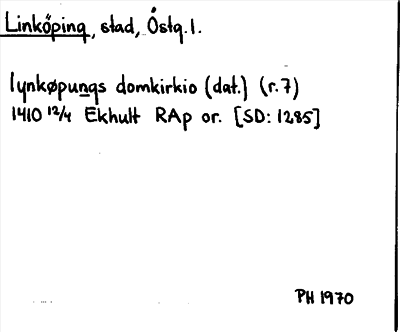 Linköping, stad, Östg.l.
lynkøpungs domkirkio (dat.) (r.7)
1410 12/4 Ekhult RAp or. [SD: 1285]
PH 1970